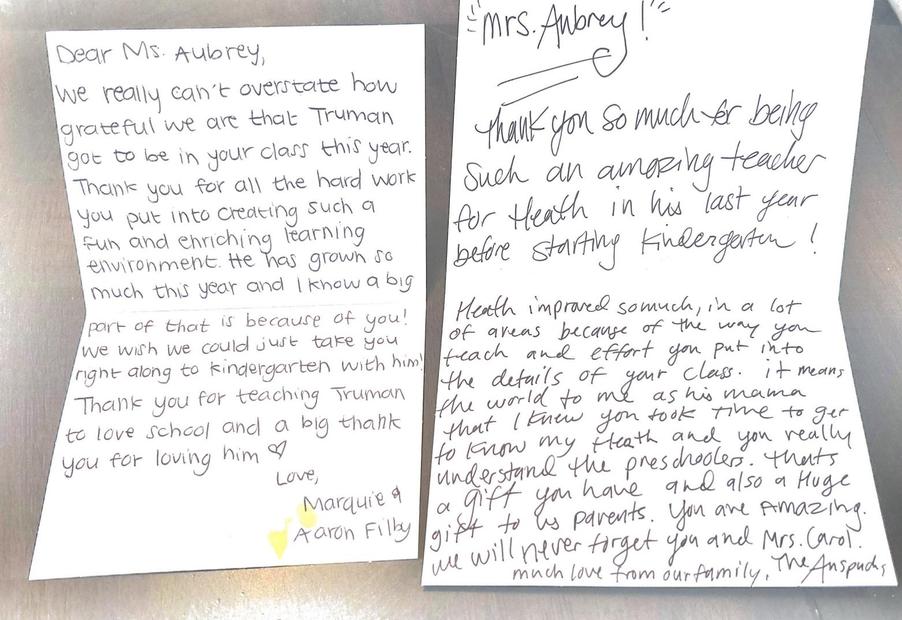 Dear Ms. Aubrey,
We really can't overstate how
grateful we are that Truman
got to be in your class this year.
Thank you for all the hard work
you put into creating such a
fun and enriching learning
environment. He has grown so
much this year and I know a big
part of that is because of you!
We wish we could just take you
right along to kindergarten with him!
Thank you for teaching Truman
to love school and a big thank
you for loving him ♡
Love,
Marquie &
Aaron Filby
"Mrs. Aubrey!"
Thank you so much for being
such an amazing teacher
for Heath in his last year
before starting kindergarten!
Heath improved so much, in a lot
of areas because of the way you
teach and effort you put into
the details of your class. it means
the world to me as his mama
that I knew you took time to get
to know my Heath and you really
understand the preschoolers. thats
a gift you have and also a Huge
gift to us parents. You are Amazing.
we will never forget you and Mrs. Carol.
much love from our family, The Anspachs